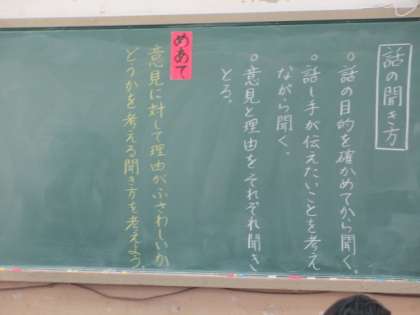 話の聞き方
○話の目的を確かめてから聞く。
○話し手が伝えたいことを考え
ながら聞く。
○意見と理由をそれぞれ聞き
とる。
めあて
意見に対して理由がふさわしいか
どうかを考える聞き方を考えよう。